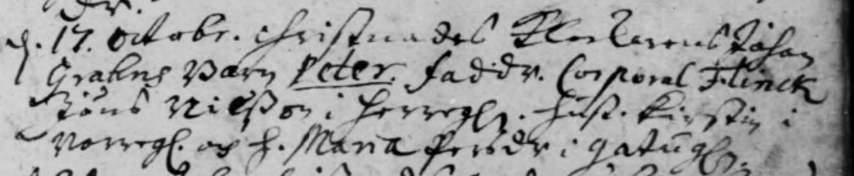 d. 17. Octobr. christnades Klockarens Johan
Grahns barn Peter. faddr. Corporal Flinck
Jöns Nilsson i Herregl. hust. Kirstin i
Norregl. och h. Maria Persdr i Gatugl.